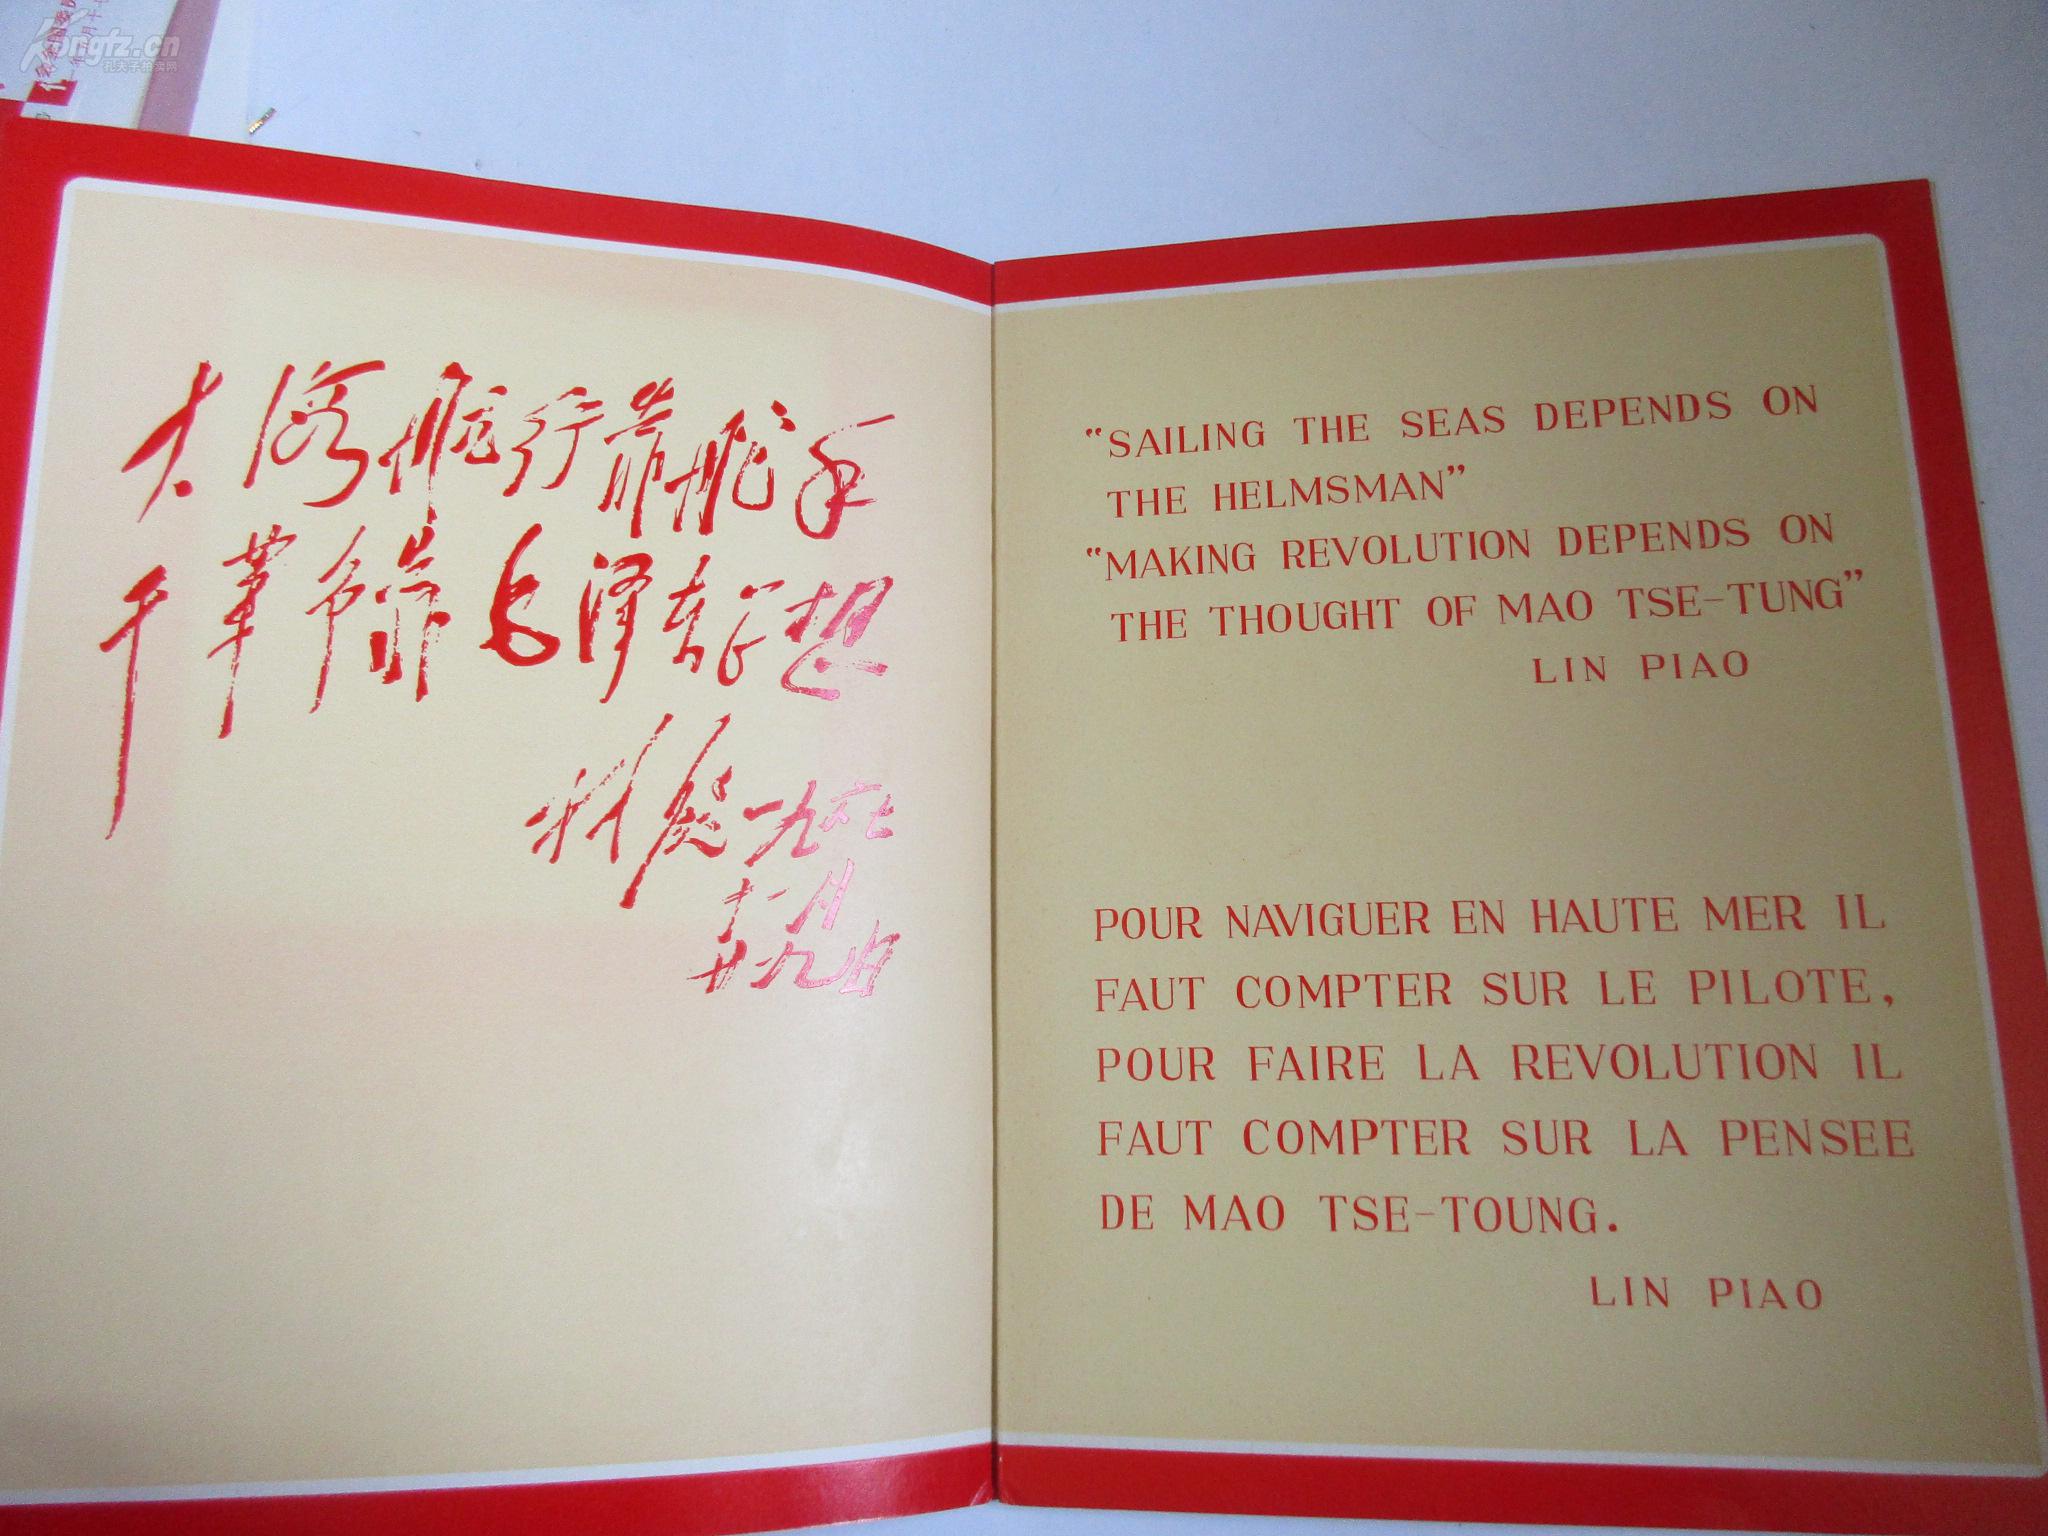 Kongfz.cn
孔夫子拍卖网
大海航行靠舵手
干革命靠毛泽东思想
林彪 一九六七
十一月
廿九日
“SAILING THE SEAS DEPENDS ON
THE HELMSMAN”
“MAKING REVOLUTION DEPENDS ON
THE THOUGHT OF MAO TSE-TUNG”
LIN PIAO
POUR NAVIGUER EN HAUTE MER IL
FAUT COMPTER SUR LE PILOTE,
POUR FAIRE LA REVOLUTION IL
FAUT COMPTER SUR LA PENSEE
DE MAO TSE-TOUNG.
LIN PIAO